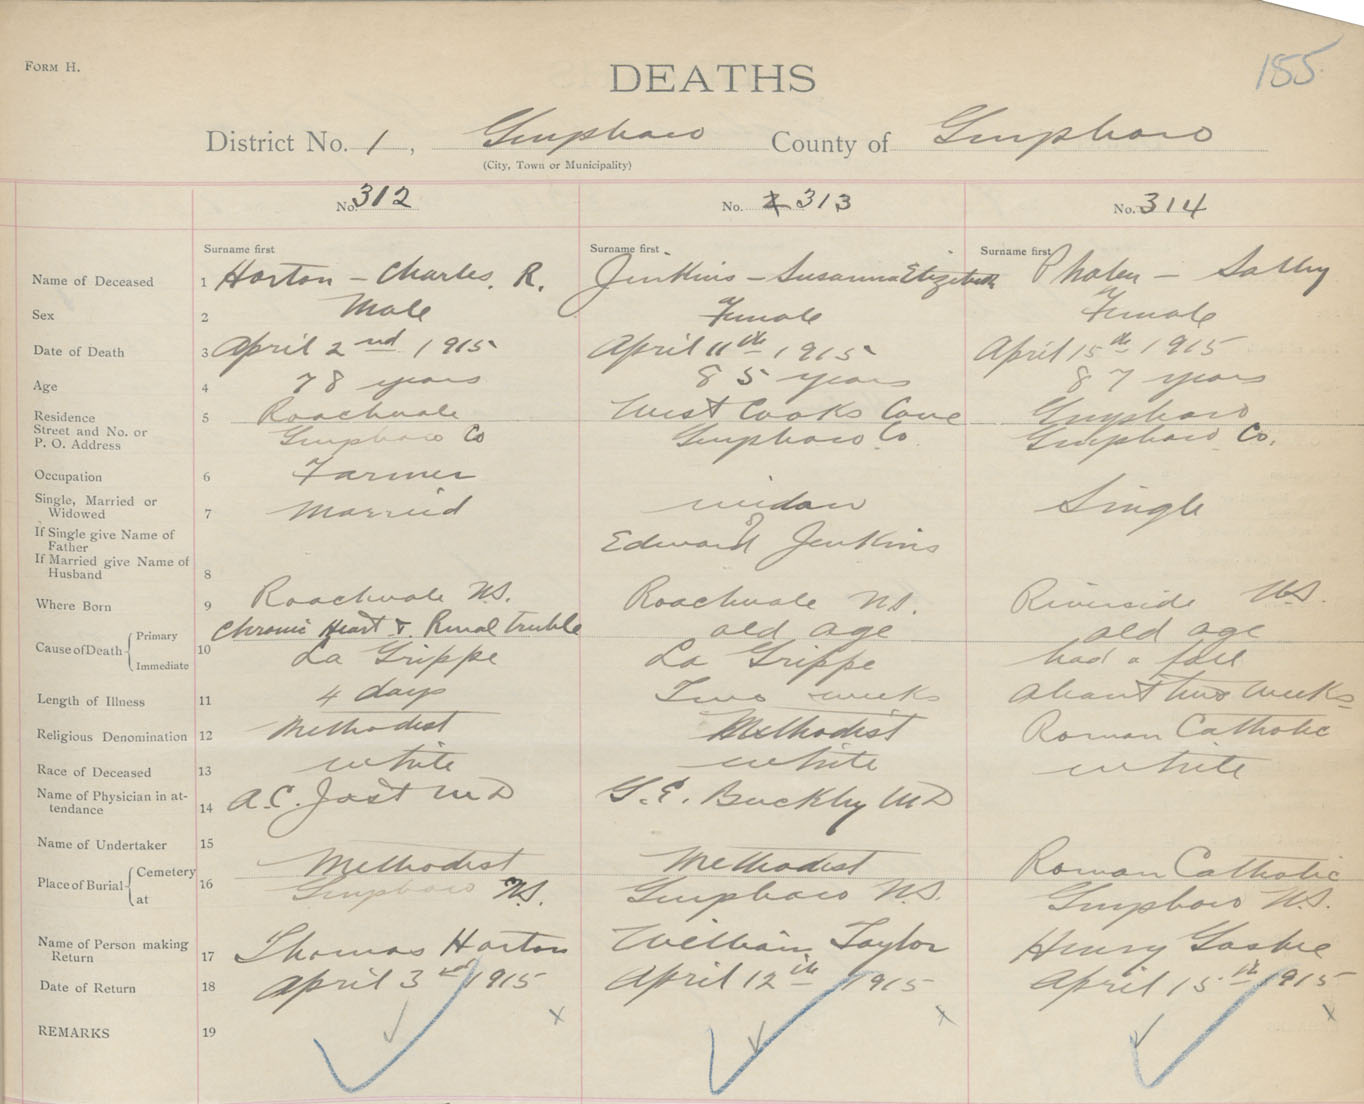 FORM H.
DEATHS
185
District No. 1, Guysboro County of Guysboro
(City, Town or Municipality)
No. 312
No. 313
No. 314
Surname first
Surname first
Surname first
Name of Deceased 1 Horton - Charles. R. Jenkins - Susanna Elizabeth Phalen - Sally
Sex 2 Male Female Female
Date of Death 3 April 2nd 1915 April 11th 1915 April 15th 1915
Age 4 78 years 85 years 87 years
Residence 5 Roachvale West Cooks Cove Guysboro
Street and No. or
P. O. Address Guysboro Co Guysboro Co. Guysboro Co.
Occupation 6 Farmer
Single, Married or
Widowed 7 Married widow Single
of
If Single give Name of
Father Edward Jenkins
If Married give Name of
Husband 8
Where Born 9 Roachvale N.S. Roachvale N.S. Riverside N.S.
Cause of Death Primary 10 Chronic Heart & Renal trouble old age old age
Immediate La Grippe La Grippe had a fall
Length of Illness 11 4 days Two weeks about two weeks
Religious Denomination 12 Methodist Methodist Roman Catholic
Race of Deceased 13 white white white
Name of Physician in at-
tendance 14 A.C. Jost M D G.E. Buckley M D
Name of Undertaker 15
Place of Burial Cemetery 16 Methodist Methodist Roman Catholic
at Guysboro N.S. Guysboro N.S. Guysboro N.S.
Name of Person making
Return 17 Thomas Horton William Taylor Henry Gaskie
Date of Return 18 April 3rd 1915 April 12th 1915 April 15th 1915
REMARKS 19